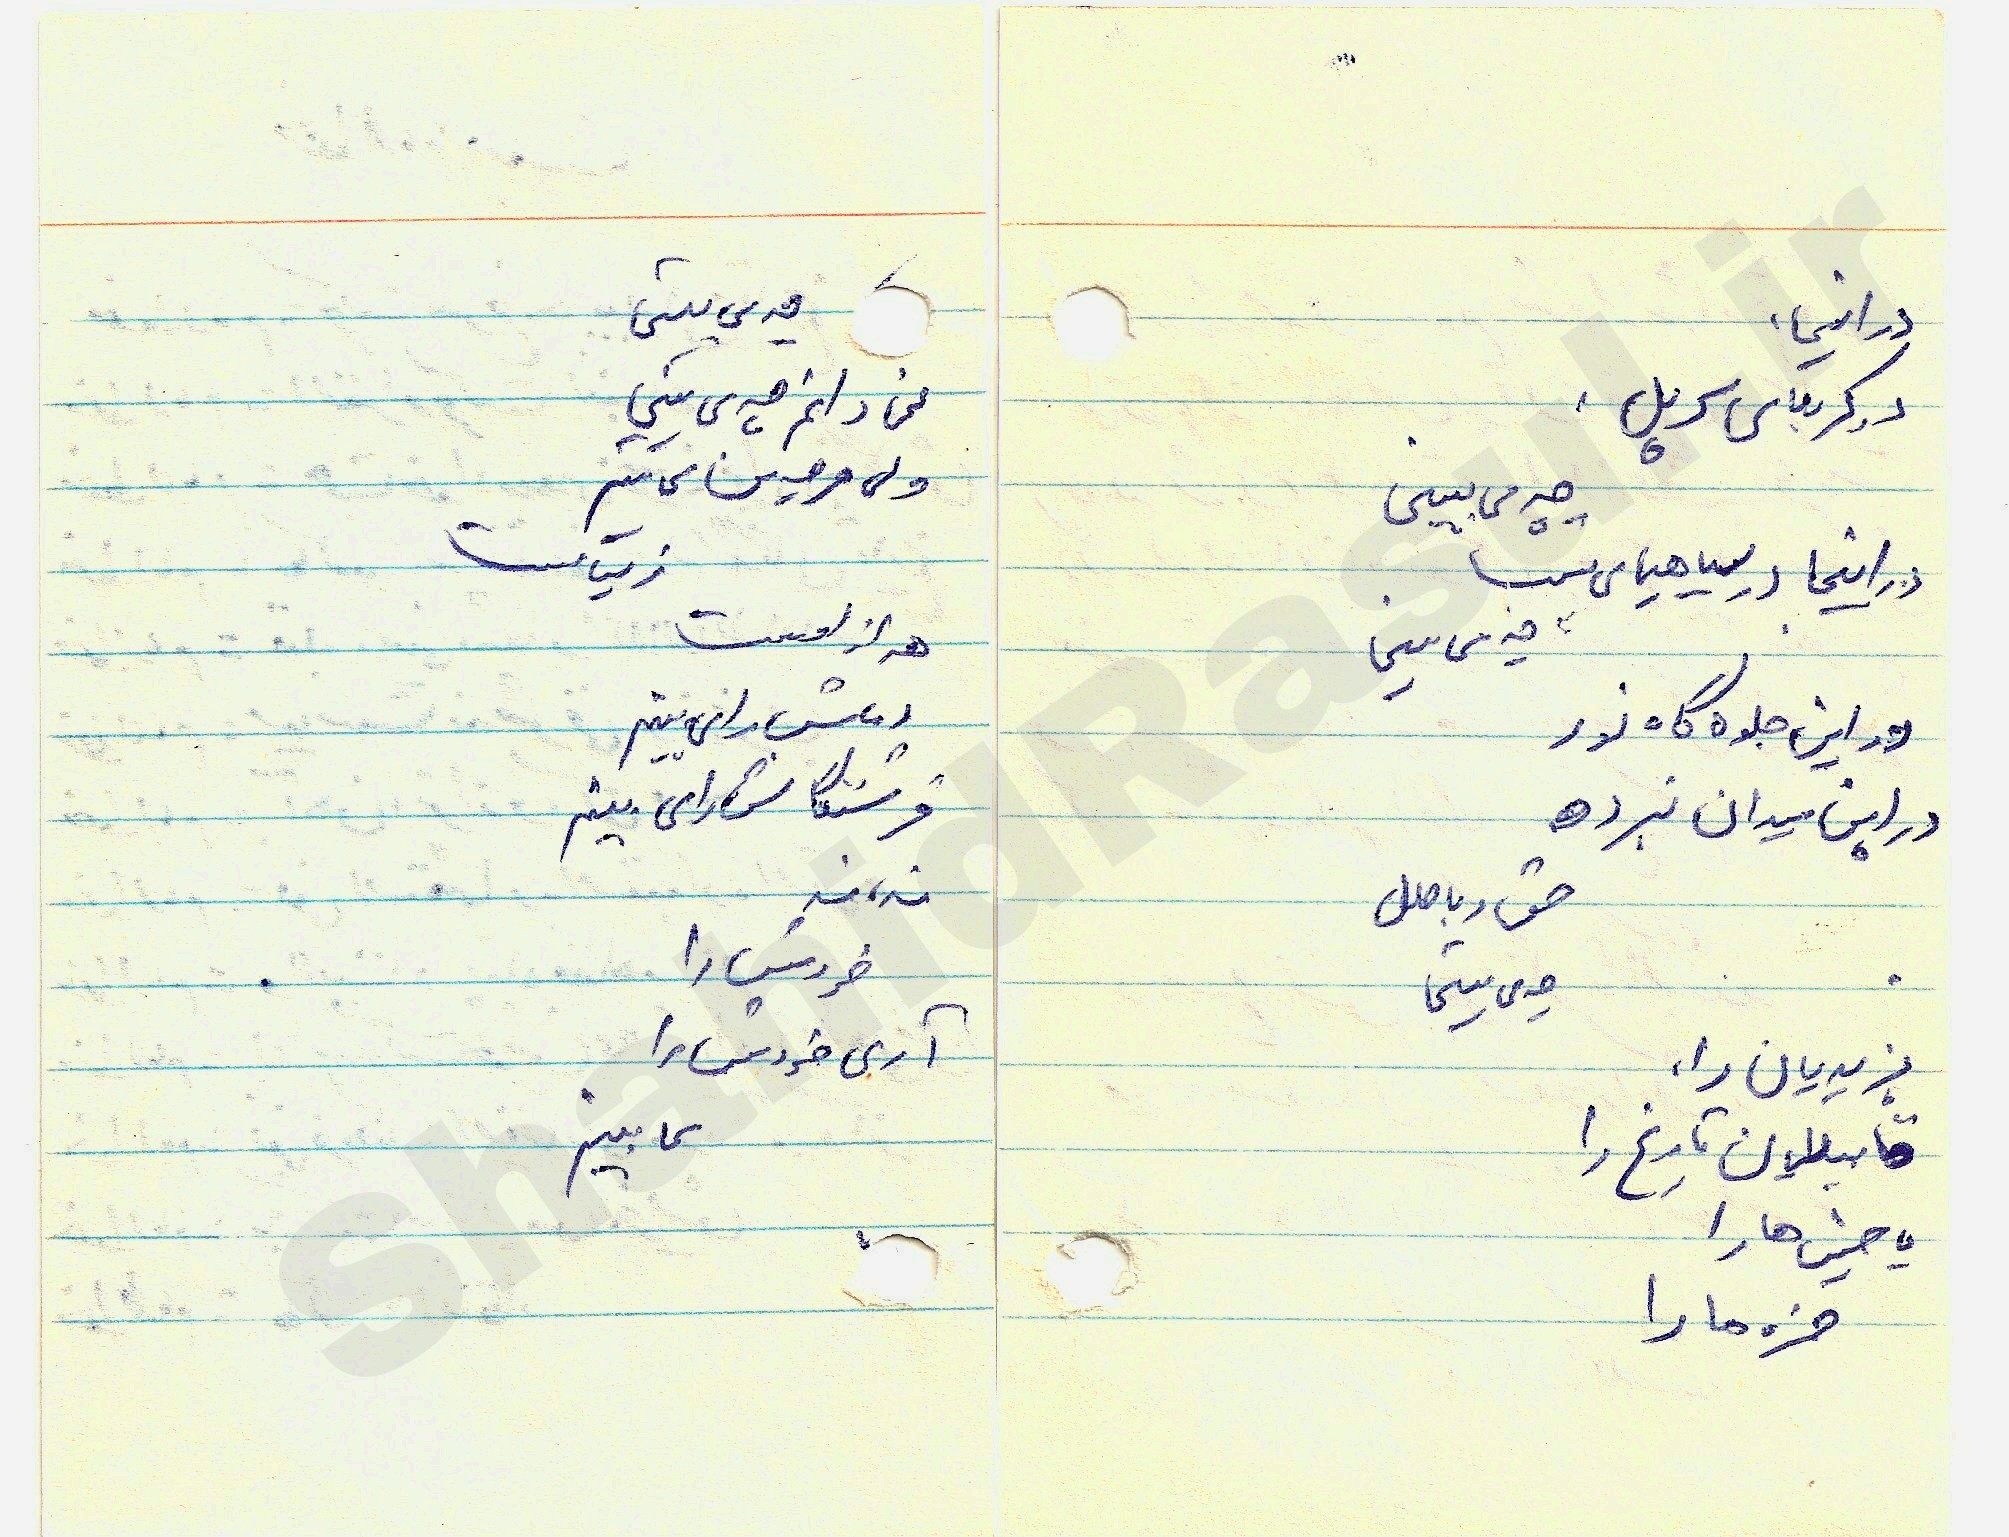 در اینجا،
در کربلای سرپل،
چه می بینی
در اینجا در سیاهیای شب
چه می بینی
در این جلوه گاه نور
در این میدان نبرده
حق و باطل
چه می بینی
یزیدیان را،
قابیلیان تاریخ را
یا حسین ها را
حمزه ها را
چه می بینی
نمی دانم چه می بینی
ولی من می بینم
زیباست
هر از اوست
را می بینم
فرشتگانش را می بینم
نه، نه
خودش را
آری خودش را
می بینم
ShahidRasul.ir